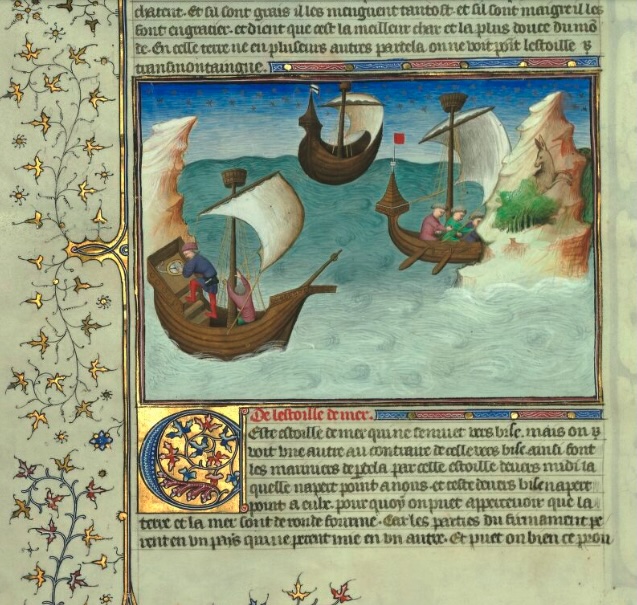 chatent. Et sil sont grais il les menguent tantost. et sil sont maigre il les
font engraner. et dient que cest la meilleur char et la plus douce du mon
de. En celle terre ne en pluseurs autres par dela. on ne voit point lestoille
transmontaingne.
De lestoille de mer.
Este estoille de mer qui ne se muet vers bise. mais on y
voit une autre au contraire de celle vers bise ainsi font
les mauniers de par dela par celle estoille devers midi la
quelle napert point a nous. et ceste devers bise napert
point a eulx. pour quoy on puet appercevoir que la
terre et la mer sont de ronde fourme. Car les parties du firmament pe
rent en un pays qui ne perent mie en un autre. Et puet on bien ce prou